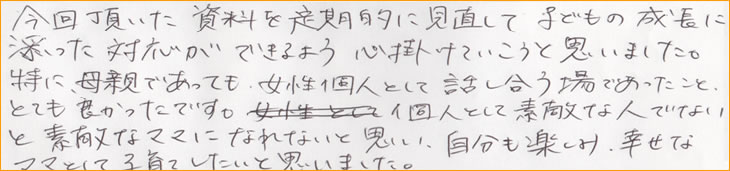 今回頂いた資料を定期的に見直して子どもの成長に
添った対応ができるよう心掛けていこうと思いました。
特に、母親であっても、女性個人として話し合う場であったこと、
とても良かったです。女性として個人として素敵な人でない
と素敵なママになれないと思い、自分も楽しみ、幸せな
ママとして子育てしたいと思いました。